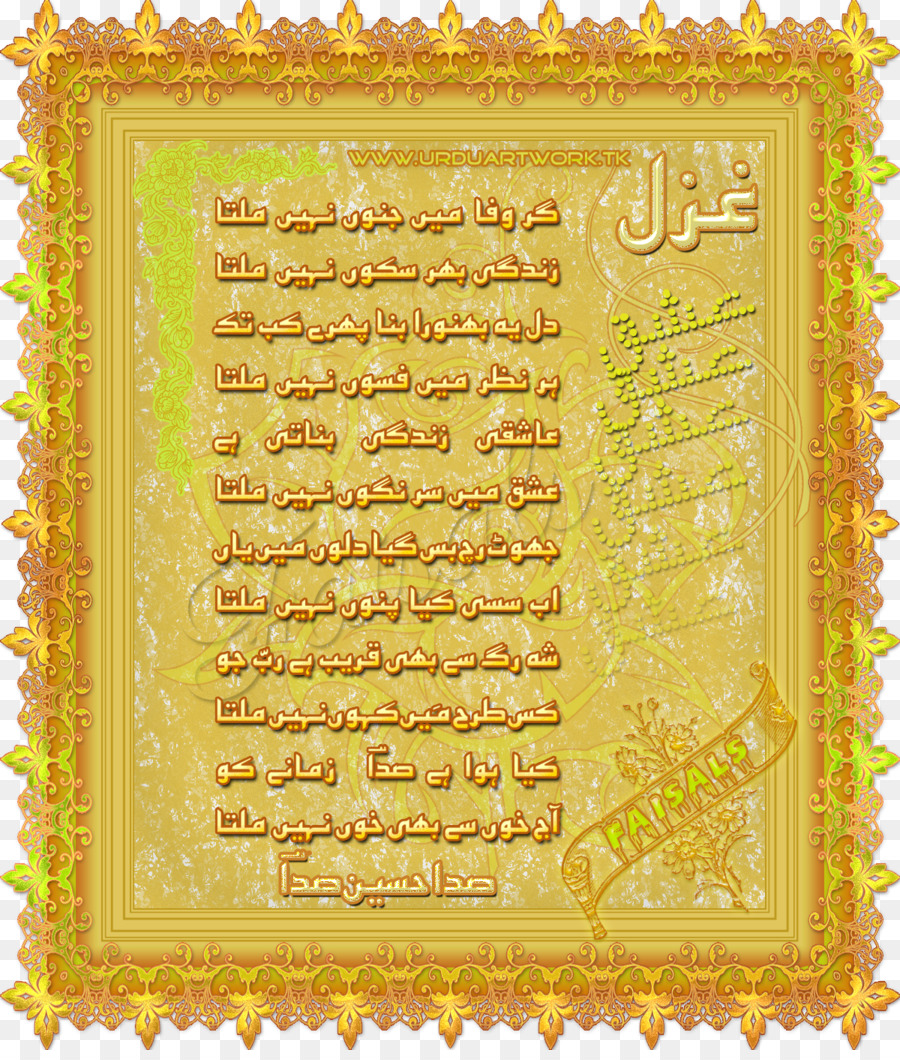 WWW.URDUARTWORK.TK
غزل
گر وفا میں جنوں نہیں ملتا
زندگی بھر سکوں نہیں ملتا
دل یہ بھنورا بنا پھرے کب تک
ہر نظر میں فسوں نہیں ملتا
عاشقی زندگی بناتی ہے
عشق میں سر نگوں نہیں ملتا
جھوٹ رچ بس گیا دلوں میں یاں
اب سسی کیا پنوں نہیں ملتا
شہ رگ سے بھی قریب ہے ربّ جو
کس طرح مَیں کہوں نہیں ملتا
کیا ہوا ہے صداؔ زمانے کو
آج خوں سے بھی خوں نہیں ملتا
صدا حسین صداؔ
عشق
عشق
عشق
عشق
عشق
عشق
FAISALS